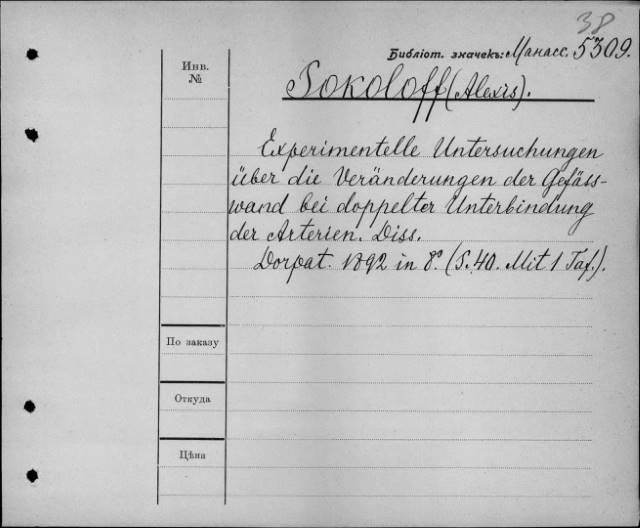 38
Библіот. значекъ: Манасс. 5309.
Инв.
№
Sokoloff (Alexis).
Experimentelle Untersuchungen
über die Veränderungen der Gefäss-
wand bei doppelter Unterbindung
der Arterien. Diss.
Dorpat. 1892 in 8°. (S. 40. Mit 1 Taf.).
По заказу
Откуда
Цѣна